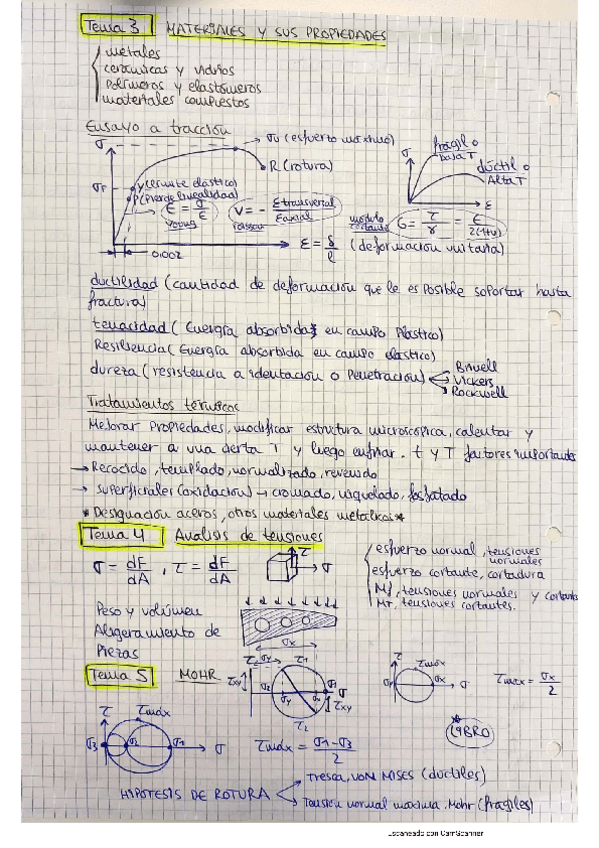 Tema 3 MATERIALES Y SUS PROPIEDADES
metales
cerámicas y vidrios
polímeros y elastómeros
materiales compuestos
Ensayo a tracción
σ
σu (esfuerzo máximo)
R (rotura)
y (límite elástico)
P (Pierde linealidad)
ε = σ/E
young
ν = - ε transversal / ε axial
poisson
0.002
ε = δ/l (deformación unitaria)
σ
frágil o
baja T
dúctil o
Alta T
ε
módulo
cortante
G = τ/γ = E/2(1+ν)
ductilidad (cantidad de deformación que le es posible soportar hasta
fractura)
tenacidad (Energía absorbida en campo Plástico)
Resiliencia (Energía absorbida en campo elástico)
dureza (resistencia a identación o Penetración)
Brinell
Vickers
Rockwell
Tratamientos térmicos
Mejorar propiedades, modificar estructura microscópica, calentar y
mantener a una cierta T y luego enfriar. t y T factores importantes
→ Recocido, templado, normalizado, revenido
→ superficiales (oxidación) → cromado, niquelado, fosfatado
* Designación aceros, otros materiales metálicos *
Tema 4 Análisis de tensiones
σ = dF/dA , τ = dF/dA
τ
σ
esfuerzo normal, tensiones
normales
esfuerzo cortante, cortadura
Mf, tensiones normales y cortante
MT, tensiones cortantes.
Peso y volúmen
Aligeramiento de
Piezas
σx
Tema 5 MOHR
τxy
σy
τ1
σ2
σy
σx
σ1
σ
τxy
τ2
τ
τmáx
σx
σ
τmax = σx/2
τ
τmáx
σ3
σ2
σ1
σ
τmáx = σ1-σ3/2
LIBRO
HIPOTESIS DE ROTURA
Tresca, VON MISES (dúctiles)
Tensión normal máxima, Mohr (frágiles)
Escaneado con CamScanner